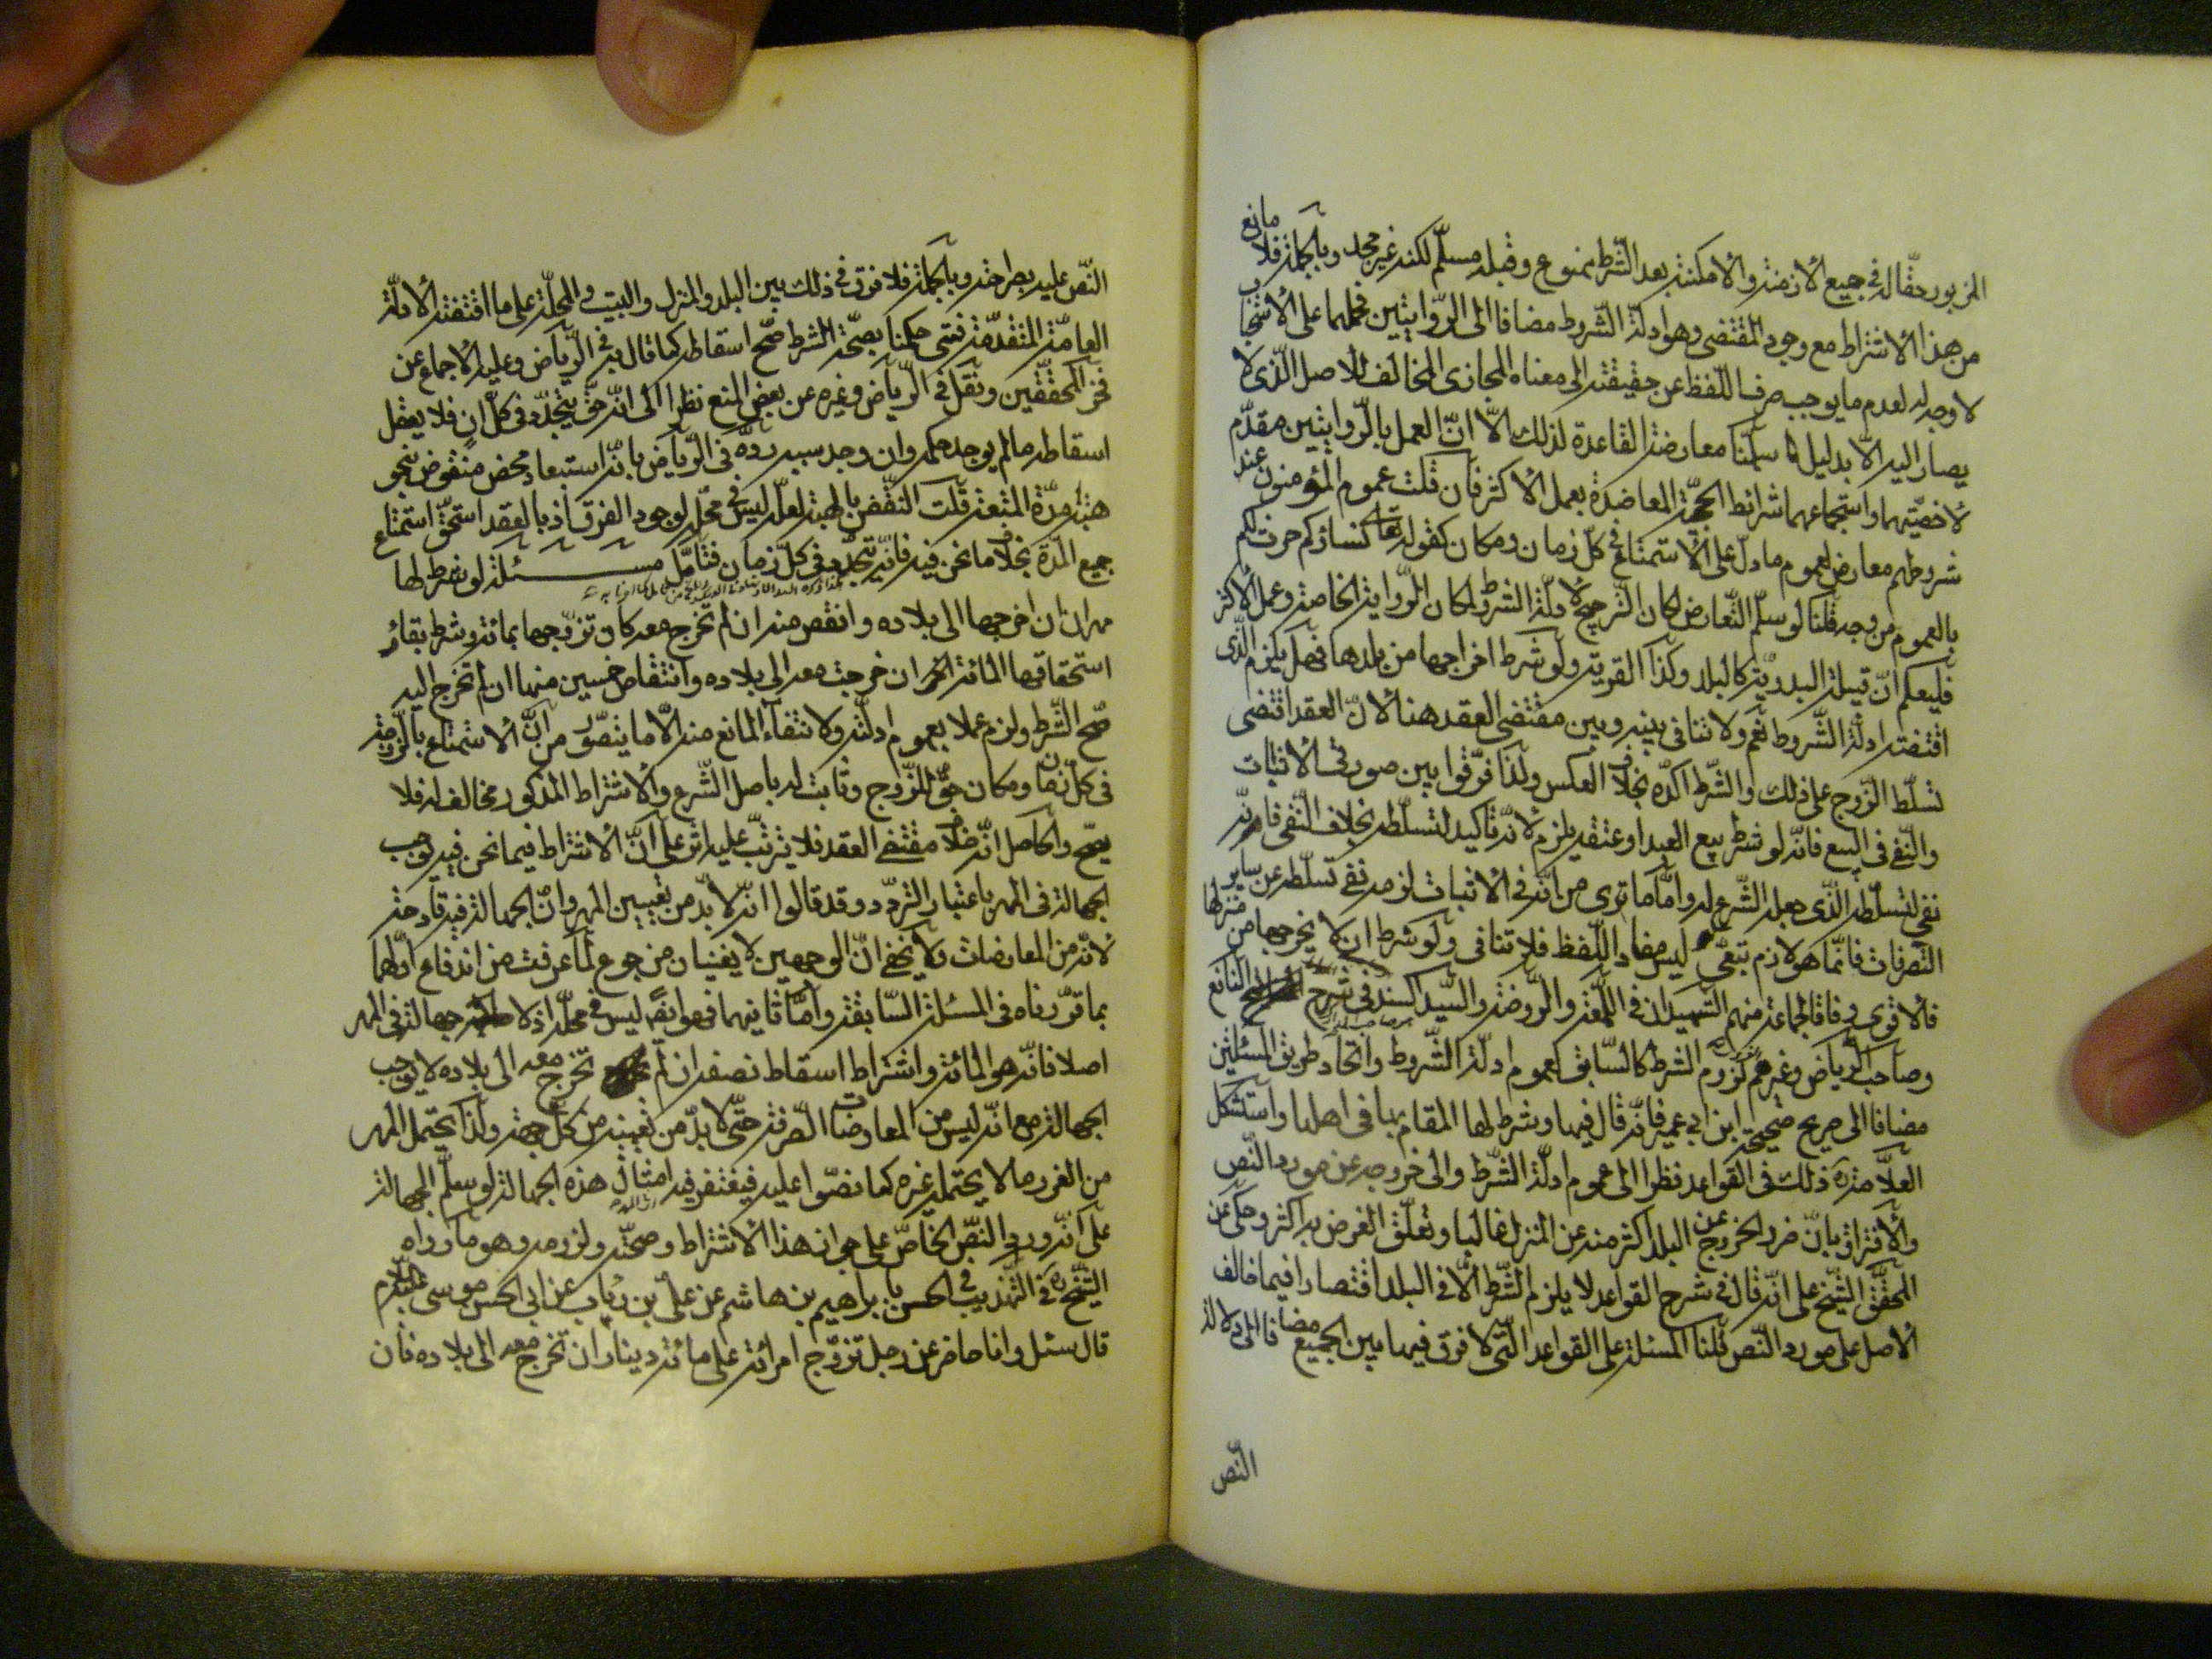 المزبور حقّا له في جميع الازمنة والامكنة بعد الشّرط ممنوع وقبله مسلّم لكنه غير مجد وبالجملة فلا مانع
من هذا الاشتراط مع وجود المقتضى وهو ادلّة الشّروط مضافا الى الرّوايتين فحملهما على الاستحباب
لا وجه له لعدم ما يوجب صرف اللّفظ عن حقيقته الى معناه المجازى المخالف للاصل الّذى لا
يصار اليه الّا بدليل سلّمنا معارضة القاعدة لذلك الّا انّ العمل بالرّوايتين مقدّم
لاخصّيتهما واستجماعهما شرائط الحجّيّة المعاضدة بعمل الاكثر فان قلت عموم المؤمنون عند
شروطهم معارض لعموم ما دلّ على الاستمتاع في كلّ زمان ومكان كقوله تعالى نساؤكم حرث لكم
بالعموم من وجه قلنا لو سلّم التّعارض لكان التّرجيح لادلّة الشرط لمكان الرّواية الخاصّة وعمل الاكثر
فليعلم انّ قبيلة البدويّة كالبلد وكذا القرية ولو شرط اخراجها من بلدها فهل يلزم الّذى
اقتضته ادلّة الشّروط نعم ولا تنافى بينه وبين مقتضى العقد هنا لانّ العقد اقتضى
تسلّط الزّوج على ذلك والشّرط اكّده بخلاف العكس ولذا فرّقوا بين صورتى الاثبات
والنّفى فى البيع فانّه لو شرط بيع العبد او عتقه يلزم لانّه تأكيد لتسلّطه بخلاف النّفى فانّه
نفى لتسلّطه الّذى جعله الشّرع له وامّا ما ترى من انّه في الاثبات لزمه نفى تسلّطه عن ساير
التّصرفات فانّما هو لازم تبعىّ ليس مفاد اللّفظ فلا تنافى ولو شرط ان لا يخرجها من منزلها
فالاقوى وفاقا لجماعة منهم الشّهيدان في اللّمعة والرّوضة والسّيد السند فى شرح النافع
وصاحب الرّياض وغيرهم لزوم الشرط كالسّابق لعموم ادلّة الشّروط واتّحاد طريق المسئلتين
مضافا الى صريح صحيحة ابن ابي عمير فانّه قال فيها وشرط لها المقام بها فى اهلها واستشكل
العلّامة ره ذلك فى القواعد نظرا الى عموم ادلّة الشّرط والى خروجه عن مورد النّص
والافتراق بانّ ضرر الخروج عن البلد اكثر منه عن المنزل غالبا وتعلّق الغرض به اكثر وحكى عن
المحقّق الشّيخ على انّه قال في شرح القواعد لا يلزم الشّرط الّا فى البلد اقتصارا فيما خالف
الاصل على مورد النّص قلنا المسئلة على القواعد الّتى لا فرق فيها بين الجميع مضافا الى دلالة
النّص
النّص عليه بصراحته وبالجملة فلا فرق في ذلك بين البلد والمنزل والبيت والمحلّة على ما اقتضته الادلّة
العامّة المتقدّمة فمتى حكمنا بصحّة الشرط صحّ اسقاطه كما قال به في الرّياض وعليه الاجماع عن
فخر المحقّقين ونقل في الرّياض وغيره عن بعض المنع نظرا الى انّه حقّ يتجدّد فى كلّ ان فلا يعقل
اسقاطه ما لم يوجد حكمه وان وجد سببه ردّه فى الرّياض بانّه استبعاد محض منقوض بنحو
هبة مدّة المتعة قلت النّقض بالهبة لعلّه ليس في محلّه لوجود الفرق اذ بالعقد استحقّ استمتاع
جميع المدّة بخلاف ما نحن فيه فانّه يتجدّد فى كلّ زمان فتأمّل مسئلة لو شرط لها
مهرا ان اخرجها الى بلاده وانقص منه ان لم تخرج معه كان تزوّجها بمائة وشرط بقاء
استحقاقها المائة ان خرجت معه الى بلاده وانتقاص خمسين منها ان لم تخرج اليه
صحّ الشّرط ولزم عملا بعموم ادلّته ولانتفاء المانع منه الّا ما يتصوّر من انّ الاستمتاع بالزّوجة
فى كلّ زمان ومكان حقّ للزّوج وثابت له باصل الشّرع والاشتراط المذكور مخالف له فلا
يصحّ والحاصل انّه خلاف مقتضى العقد فلا يترتّب عليه اثر على انّ الاشتراط فيما نحن فيه يوجب
الجهالة فى المهر باعتبار التّردّد وقد قالوا انّه لا بدّ من تعيين المهر وانّ الجهالة فيه قادحة
لانّه من المعارضات ولا يخفى انّ الوجهين لا يغنيان من جوع لما عرفت من اندفاع اوّلهما
بما قرّرناه فى المسئلة السّابقة وامّا ثانيهما فهو ايضا ليس في محلّه اذ لا جهالة فى المهر
اصلا فانّه هو المائة واشتراط اسقاط نصفه ان لم تخرج معه الى بلاده لا يوجب
الجهالة مع انّه ليس من المعاوضات الصّرفة حتّى لا بدّ من تعيينه من كلّ جهة ولذا يحتمل المهر
من الغرر ما لا يحتمله غيره كما نصّوا عليه فيغتفر فيه امثال هذه الجهالة لو سلّم الجهالة
على انّه ورد النّص الخاصّ على جواز هذا الاشتراط وصحّته ولزومه وهو ما رواه
الشّيخ ره في التّهذيب في الحسن بابراهيم بن هاشم عن علىّ بن رئاب عن ابى الحسن موسى عليه السّلام
قال سئل وانا حاضر عن رجل تزوّج امرائة على مائة دينار ان تخرج معه الى بلاده فان